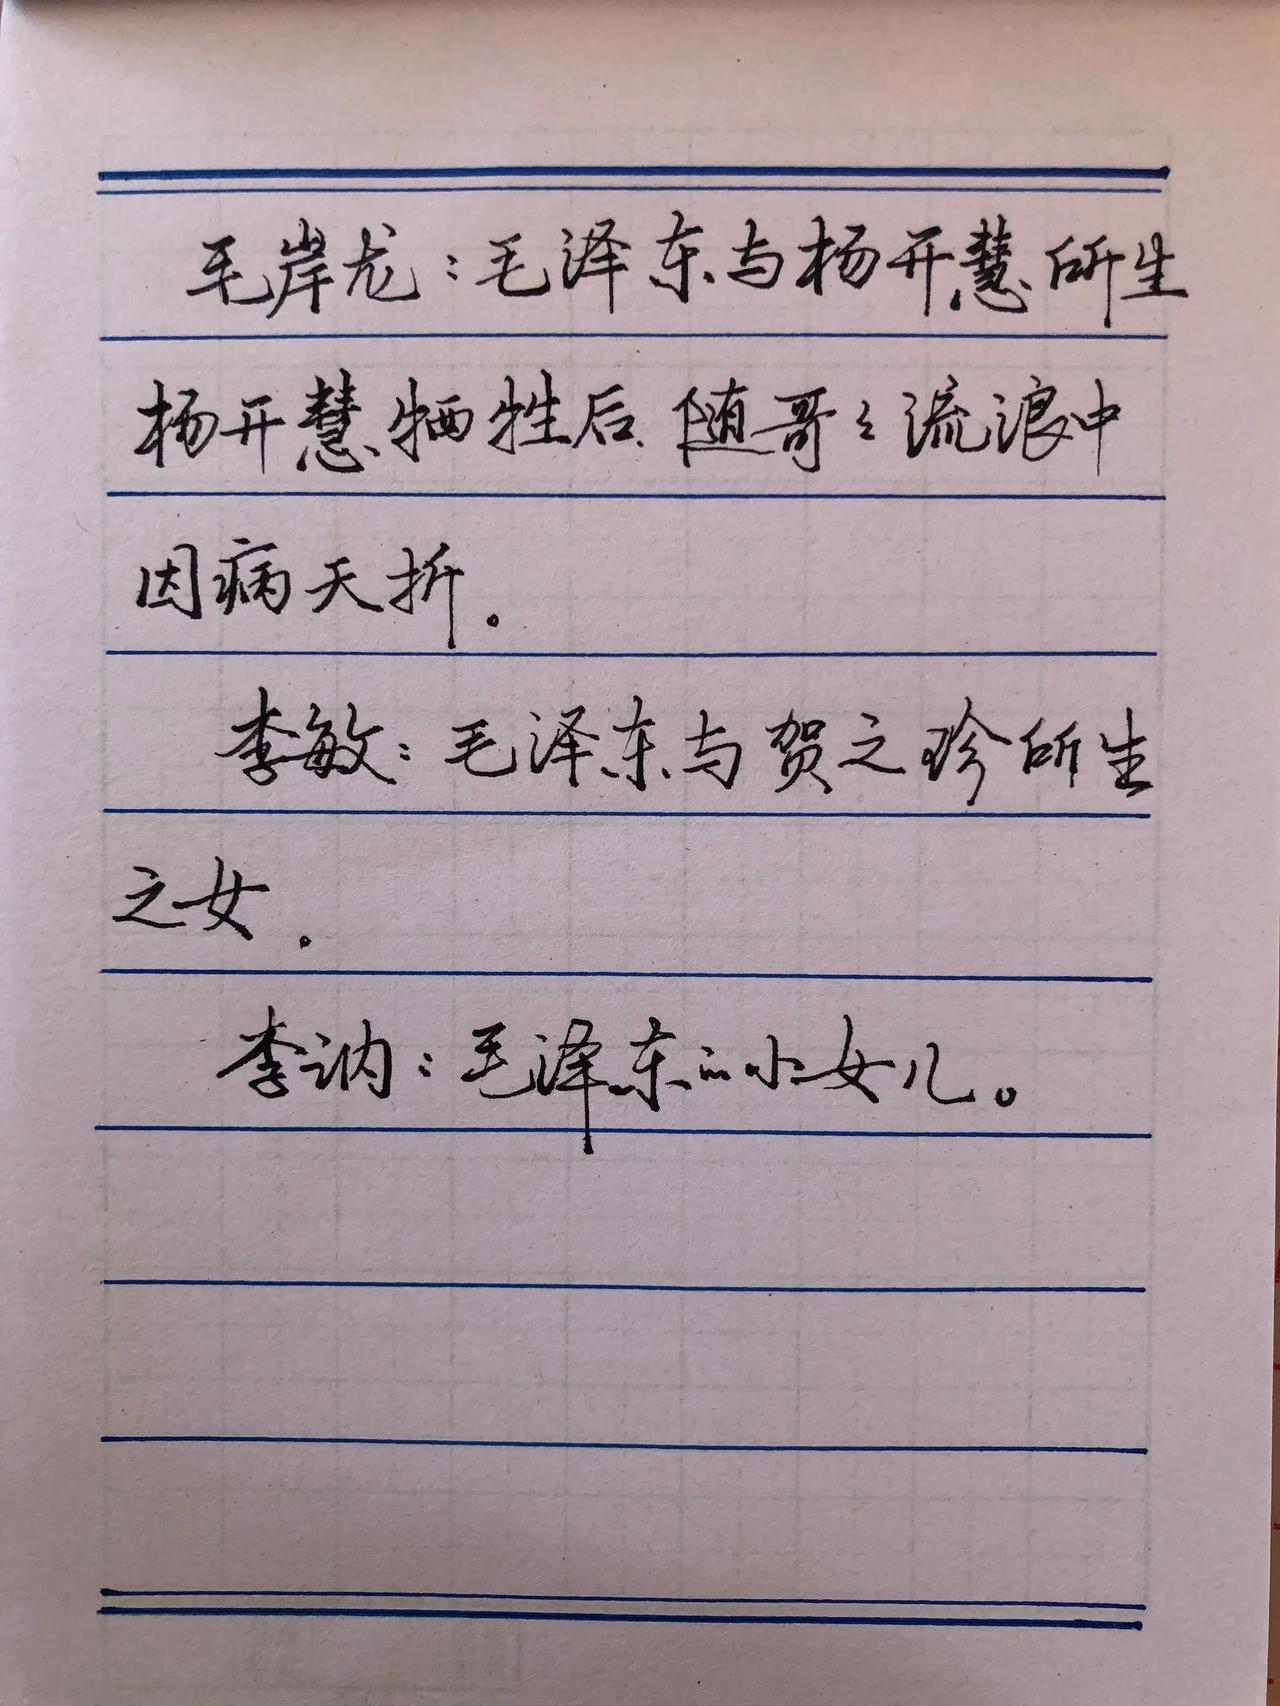 毛岸龙:毛泽东与杨开慧所生
杨开慧牺牲后随哥々流浪中
因病夭折.
李敏:毛泽东与贺之珍所生
之女.
李讷:毛泽东的小女儿。